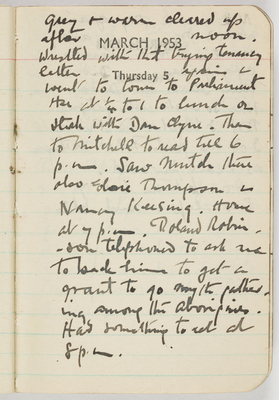 grey & warm cleared up
after noon.
MARCH 1953
wrestled with that trying tenancy
letter again &
Thursday 5
went to town to Parliament
Hse at ¼ to 1 to lunch on
steak with Dan Clyne. Then
to Mitchell to read till 6
p.m. Saw Mutch there
also Elsie Thompson &
Nancy Keesing. Home
at 7 p.m. Roland Robin-
-son telephoned to ask me
to back him to get a
grant to go myth gather-
ing among the aborigines.
Had something to eat at
8 p.m.